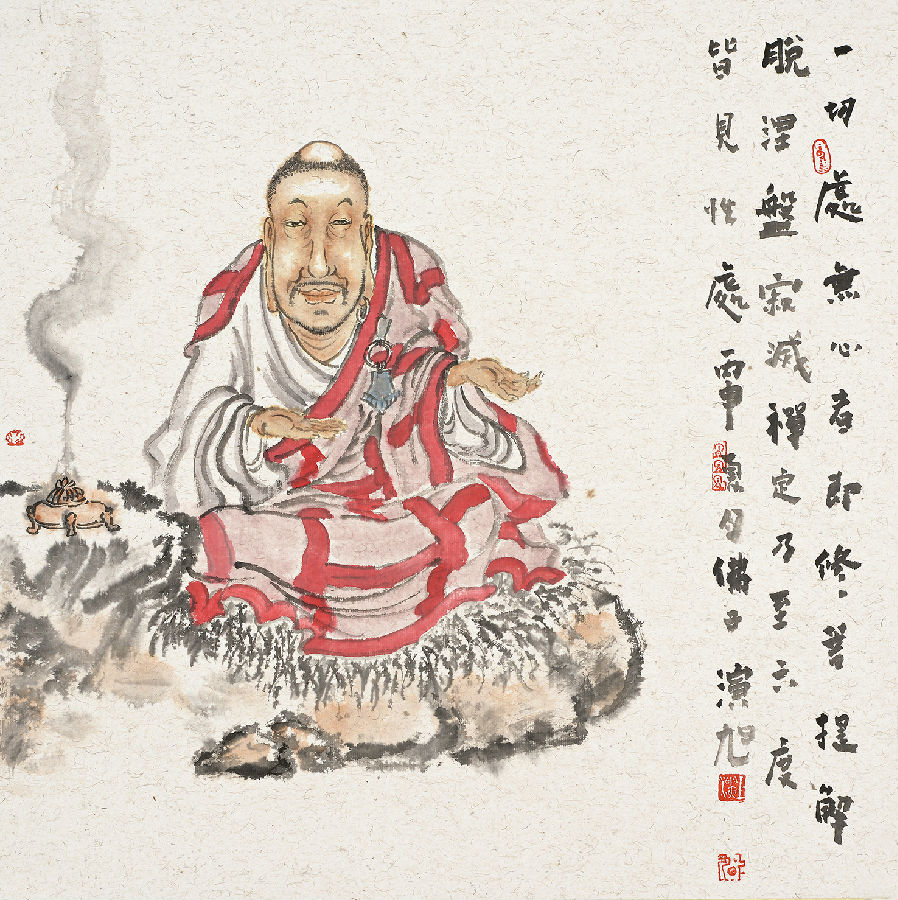 一切處無心者即修菩提解
脫涅盤寂滅禪定乃至六度
皆見性處丙申夏月佛子演旭